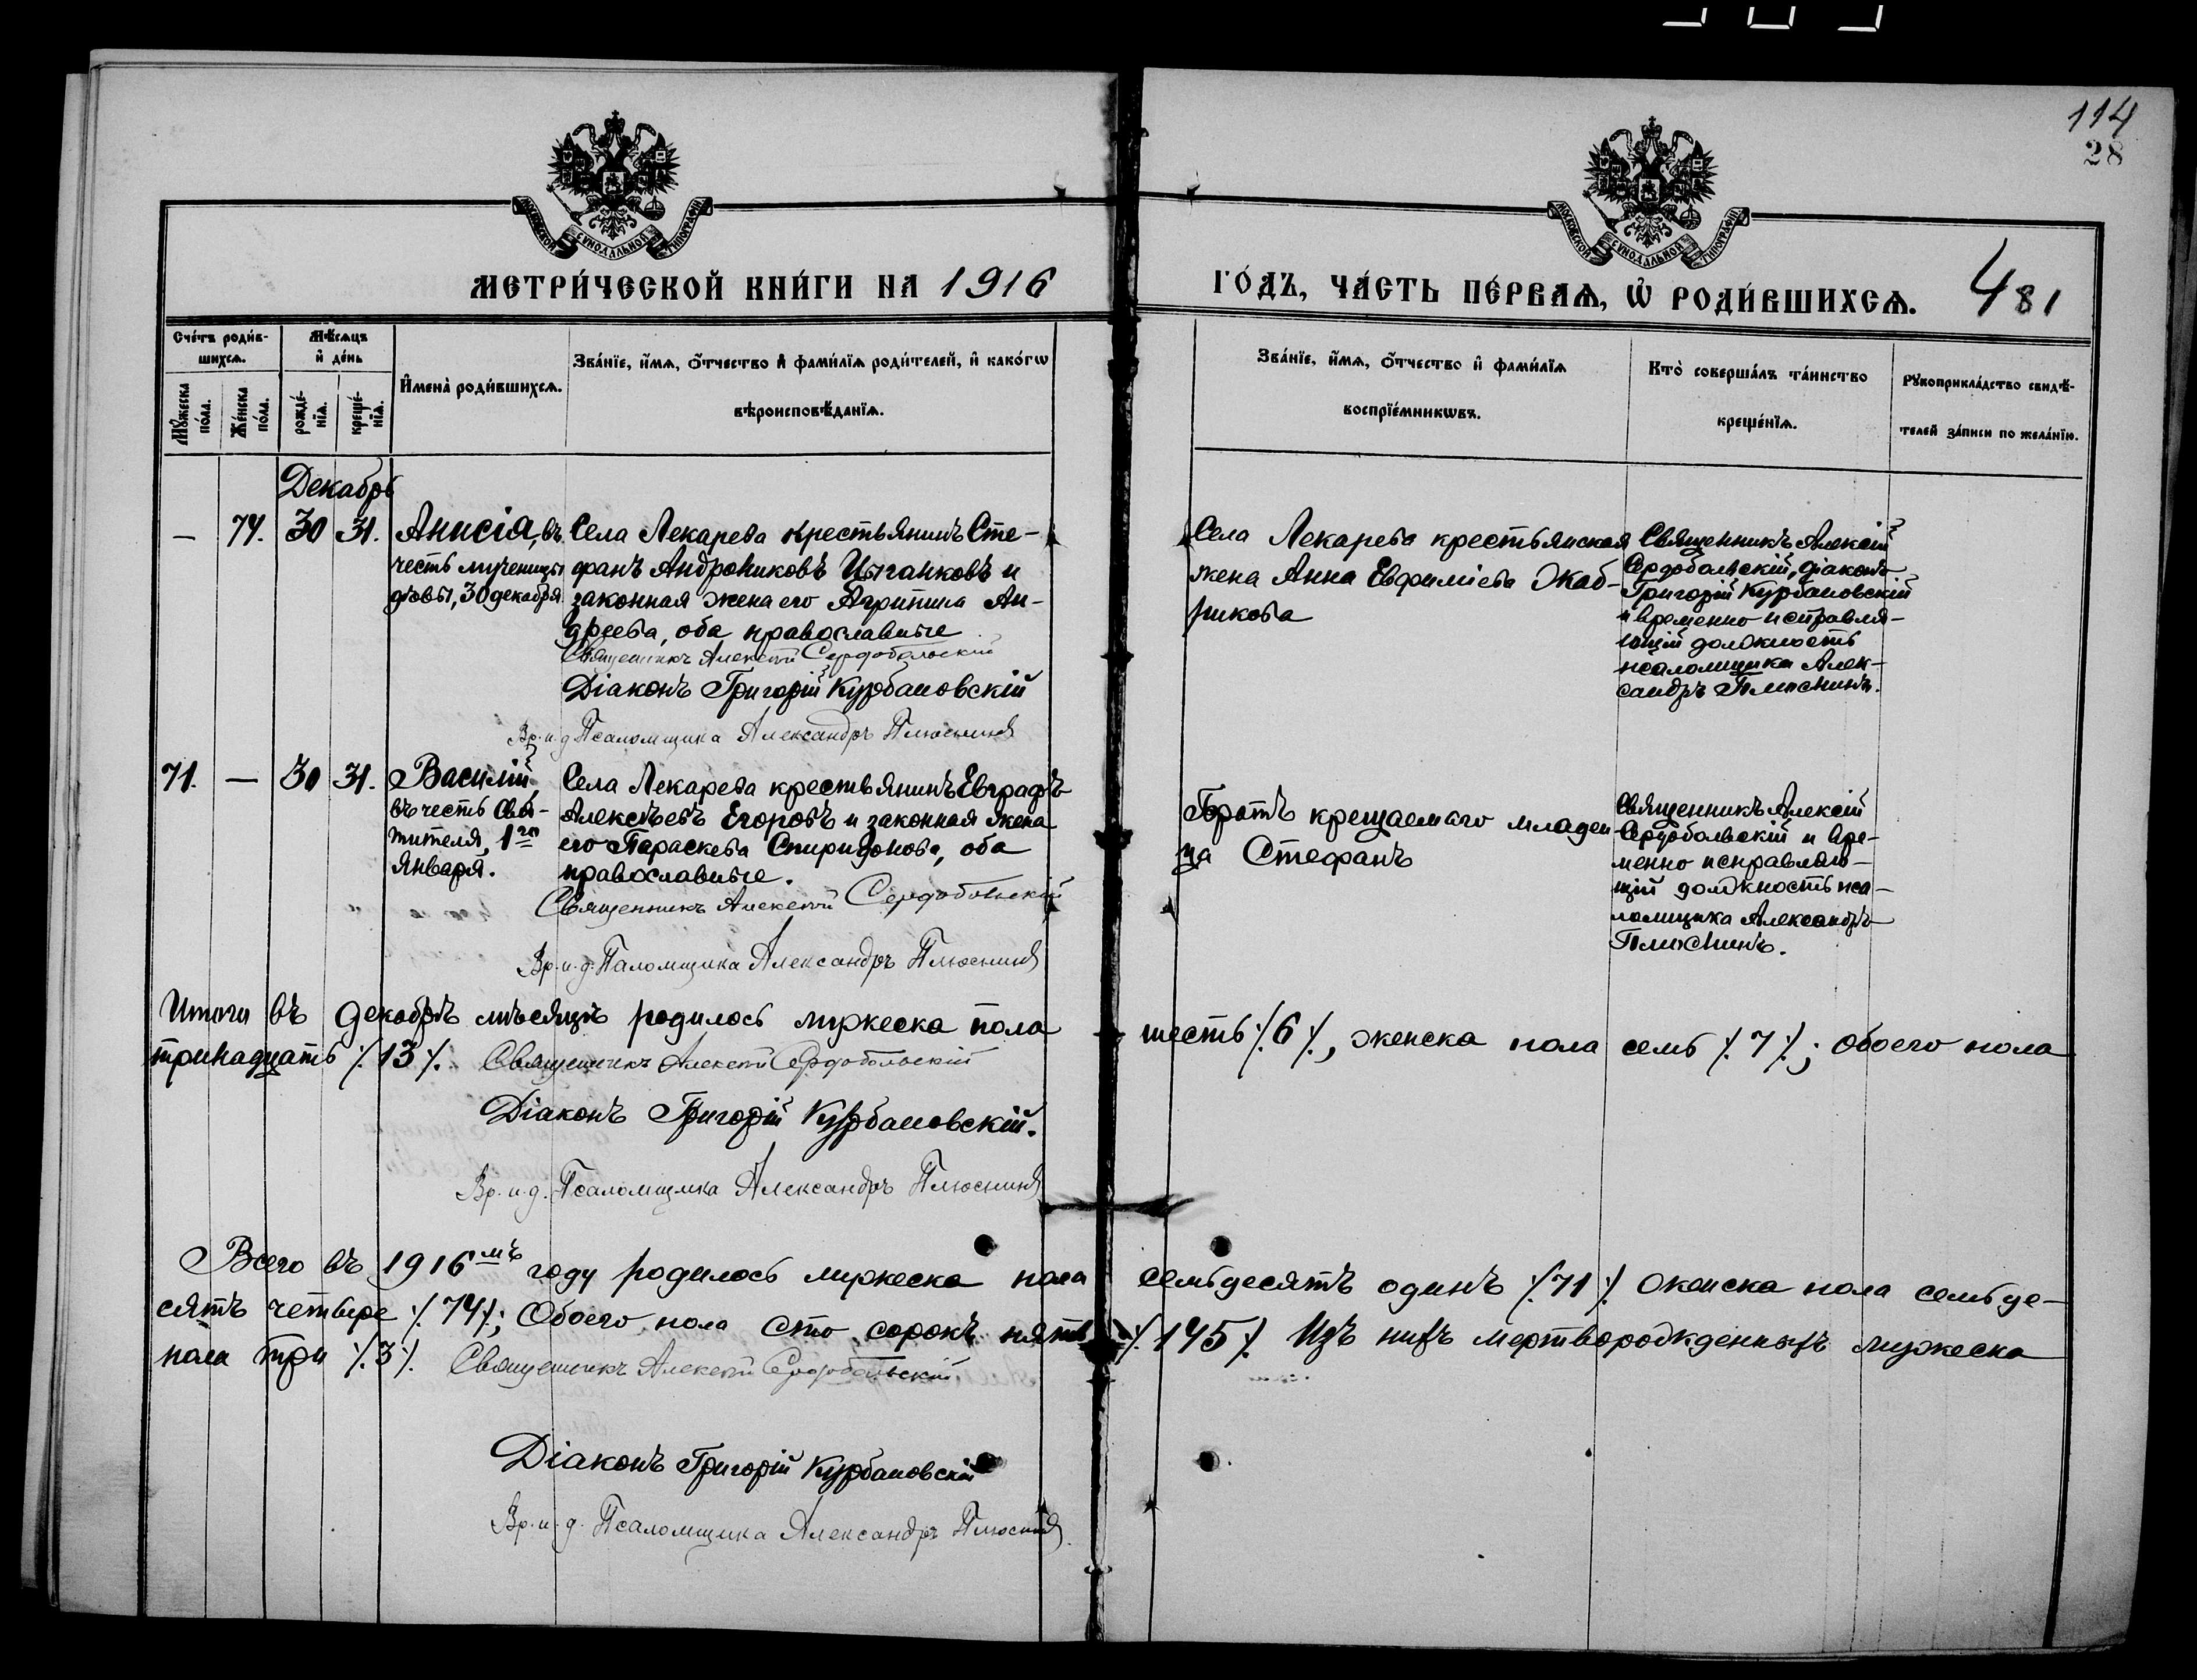 114
28
МОСКОВСКОЙ СѴНОДАЛЬНОЙ ТИПОГРАФІИ
МОСКОВСКОЙ СѴНОДАЛЬНОЙ ТИПОГРАФІИ
МЕТРИ́ЧЕСКОЙ КНИ́ГИ НА 1916
ГО́ДЪ, ЧА́СТЬ ПЕ́РВАѦ, Ѡ҆ РОДИ́ВШИХСѦ.
481
Сче́тъ роди́в-
шихсѧ.
Мѣ́сѧцъ
и҆ де́нь
Мꙋ́жеска по́ла.
Же́нска по́ла.
рожде́-
нїѧ.
креще́-
нїѧ.
И҆мена̀ роди́вшихсѧ.
Зва́нїе, и҆́мѧ, ѻ҆́тчество и҆ фами́лїѧ роди́телей, и҆ како́гѡ
вѣроисповѣ́данїѧ.
Зва́нїе, и҆́мѧ, ѻ҆́тчество и҆ фами́лїѧ
воспрїе́мникѡвъ.
Кто̀ соверша́лъ та́инство
креще́нїѧ.
Рꙋкоприкла́дство свидѣ́-
телей за́писи по жела́нїю.
Декабрь
— 74. 30 31.
Анисія, въ
честь мученицы
дѣвы, 30 декабря
Села Лекарева крестьянинъ Сте-
фанъ Андрониковъ Цыганковъ и
законная жена его Агрипина Ан-
дреева, оба православные
Священникъ Алексій Сердобольскій
Діаконъ Григорій Курбановскій
Вр. и. д. Псаломщика Александръ Плюснинъ
Села Лекарева крестьянская
жена Анна Евфиміева Жаб-
рикова
Священникъ Алексій
Сердобольскій, діаконъ
Григорій Курбановскій
и временно исправля-
ющій должность
псаломщика Алек-
сандръ Плюснинъ.
71. — 30 31.
Василій,
въ честь Свя-
тителя, 1го
Января.
Села Лекарева крестьянинъ Евграфъ
Алексѣевъ Егоровъ и законная жена
его Параскева Спиридонова, оба
православные.
Священникъ Алексій Сердобольскій
Вр. и. д. Паломщика Александръ Плюснинъ
Братъ крещаемаго младен-
ца Стефанъ
Священникъ Алексій
Сердобольскій и вре-
менно исправляю-
щій должность пса-
ломщика Александръ
Плюснинъ.
Итого въ декабрѣ мѣсяцѣ родилось мужеска пола шесть /.6/., женска пола семь /.7/.; обоего пола
тринадцать /.13/. Священникъ Алексій Сердобольскій
Діаконъ Григорій Курбановскій.
Вр. и. д. Псаломщика Александръ Плюснинъ
Всего въ 1916мъ году родилось мужеска пола семьдесятъ одинъ /.71/. женска пола семьде-
сятъ четыре /.74/.; Обоего пола сто сорокъ пять /.145/. Изъ нихъ мертворожденныхъ мужеска
пола три /.3/. Священникъ Алексій Сердобольскій
Діаконъ Григорій Курбановскій
Вр. и. д. Псаломщика Александръ Плюснинъ